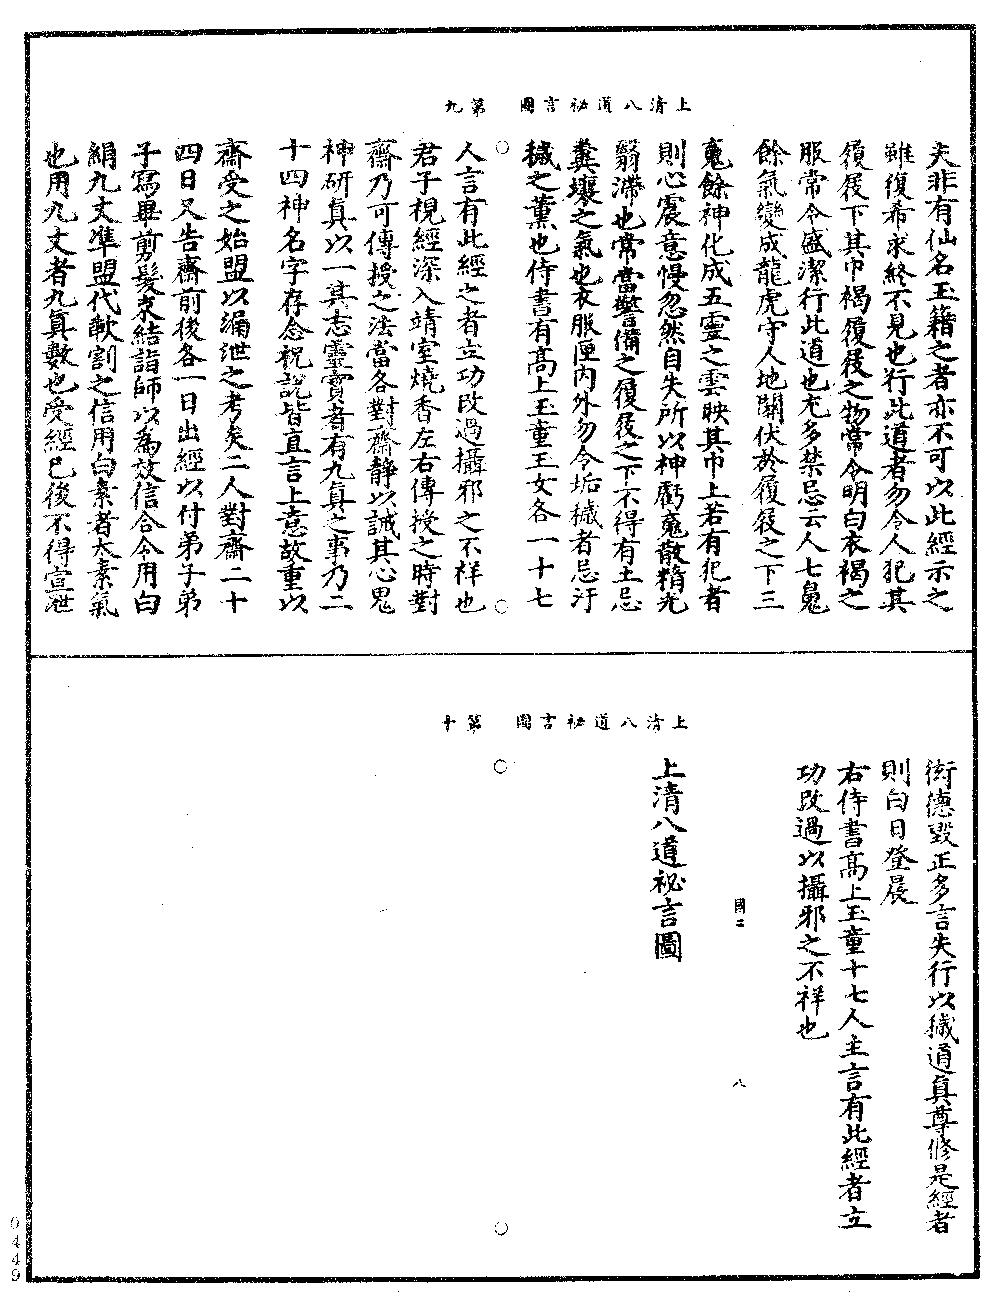 上清八道祕言圖　第九
夫非有仙名玉籍之者亦不可以此經示之
雖復希求終不見也行此道者勿令人犯其
履屐下其巾褐履屐之物常令明白衣褐之
服常令盛潔行此道也尤多禁忌云人七魄
餘氣變成龍虎守人地關伏於履屐之下三
魂餘神化成五靈之雲映其巾上若有犯者
則心震意慢忽然自失所以神虧魂散精光
翳滯也常當警備之履屐之下不得有土忌
糞壤之氣也衣服匣內外勿令垢穢者忌汙
穢之薰也侍書有高上玉童玉女各一十七
人言有此經之者立功改過攝邪之不祥也
君子視經深入靖室燒香左右傳授之時對
齋乃可傳授之法當各對齋靜以誠其心鬼
神研真以一其志靈寶者有九真之事乃二
十四神名字存念祝說皆直言上意故重以
齋受之始盟以漏泄之考矣二人對齋二十
四日又告齋前後各一日出經以付弟子弟
子寫畢剪髮束結詣師以為效信合令用白
絹九丈準盟代歃割之信用白素者太素氣
也用九丈者九真數也受經已後不得宣泄
上清八道祕言圖　第十
衒德毀正多言失行以穢道真尊修是經者
則白日登晨
右侍書高上玉童十七人主言有此經者立
功改過以攝邪之不祥也
國二　八
上清八道祕言圖
0449